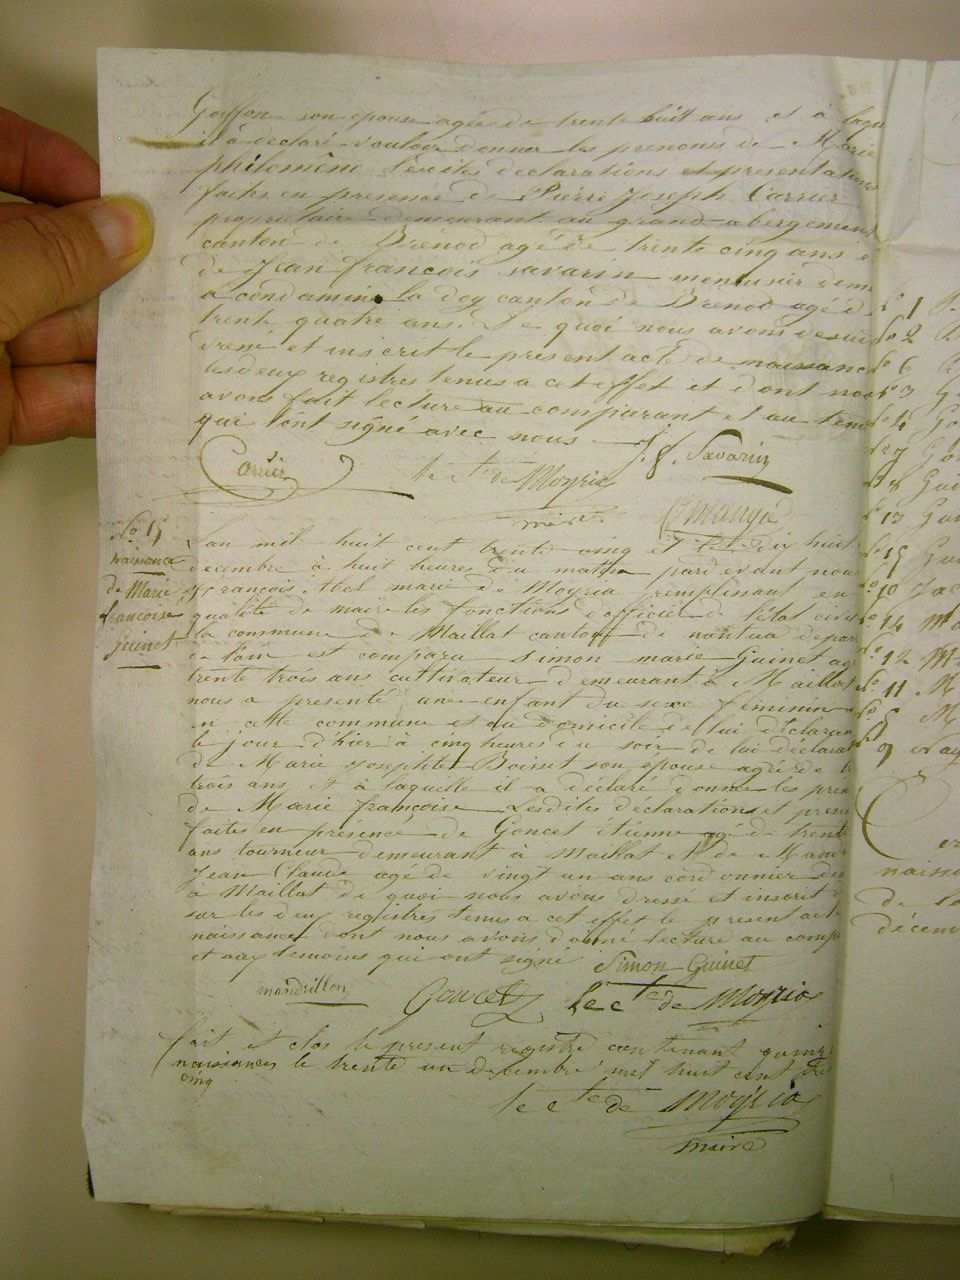 Goiffon son epouse agée de trente huit ans et à laqu
il à declaré vouloir donner les prenoms de Marie
philomène lesdites declarations et presentations
faites en presence de Pierre Joseph Carrier
propriétaire demeurant au grand abergement
canton de Brénod agé de trente cinq ans e
de Jean francois savarin menuisier dem
a condamine la doy canton de Brenod agé d
trente quatre ans. De quoi nous avons de suit
dressé et inscrit le présent acte de naissanc
les deux registres tenus a cet effet et dont nou
avons fait lecture au comparant et au tem
qui l'ont signé avec nous
J. f. Savarin
Carrier
le Cte de Moyria
maire
No 15
naissance
de Marie
francoise
Guinet
L'an mil huit cent trente cinq et le dix huit
décembre à huit heures du matin pardevant nous
françois Abel marie de Moyria remplissant en
qualité de maire les fonctions d'officier de l'état civil
la commune de Maillat canton de nantua depar
de l'ain est comparu Simon marie Guinet agé
trente trois ans cultivateur demeurant à Maillat
nous a présenté un enfant du sexe feminin
en cette commune et au domicile de lui déclaran
le jour d'hier à cinq heures du soir de lui déclarat
de Marie Josephte Boisset son epouse agée de t
trois ans et à laquelle il a déclaré donner les pren
de Marie françoise Lesdites déclarations et prese
faites en présence de Goncet étienne agé de trente
ans tourneur demeurant à Maillat et de Mand
Jean Claude agé de vingt un ans cordonnier de
à Maillat de quoi nous avons dressé et inscrit
sur les deux registres tenus a cet effet le present acte
naissance dont nous avons donné lecture au comp
et aux temoins qui ont signé
Simon Guinet
mandrillon
Goncet
Le Cte de Moyria
fait et clos le present registre contenant quinz
naissances le trente un decembre mil huit cent tre
cinq
le Cte de Moyria
maire
No 1
No 2
No 6
No 3
No 4
No 7
No 8
No 13
No 15
No 10
No 14
No 12
No 11
No 5
No 9
naiss
de la
décem